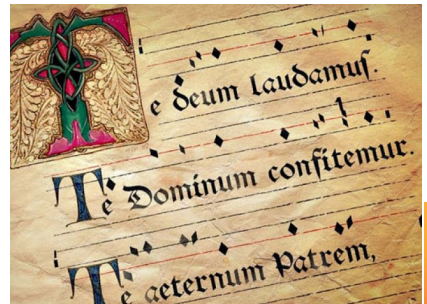 Te deum laudamuſ.
Te Dominum confitemur.
Te aeternum Patrem,